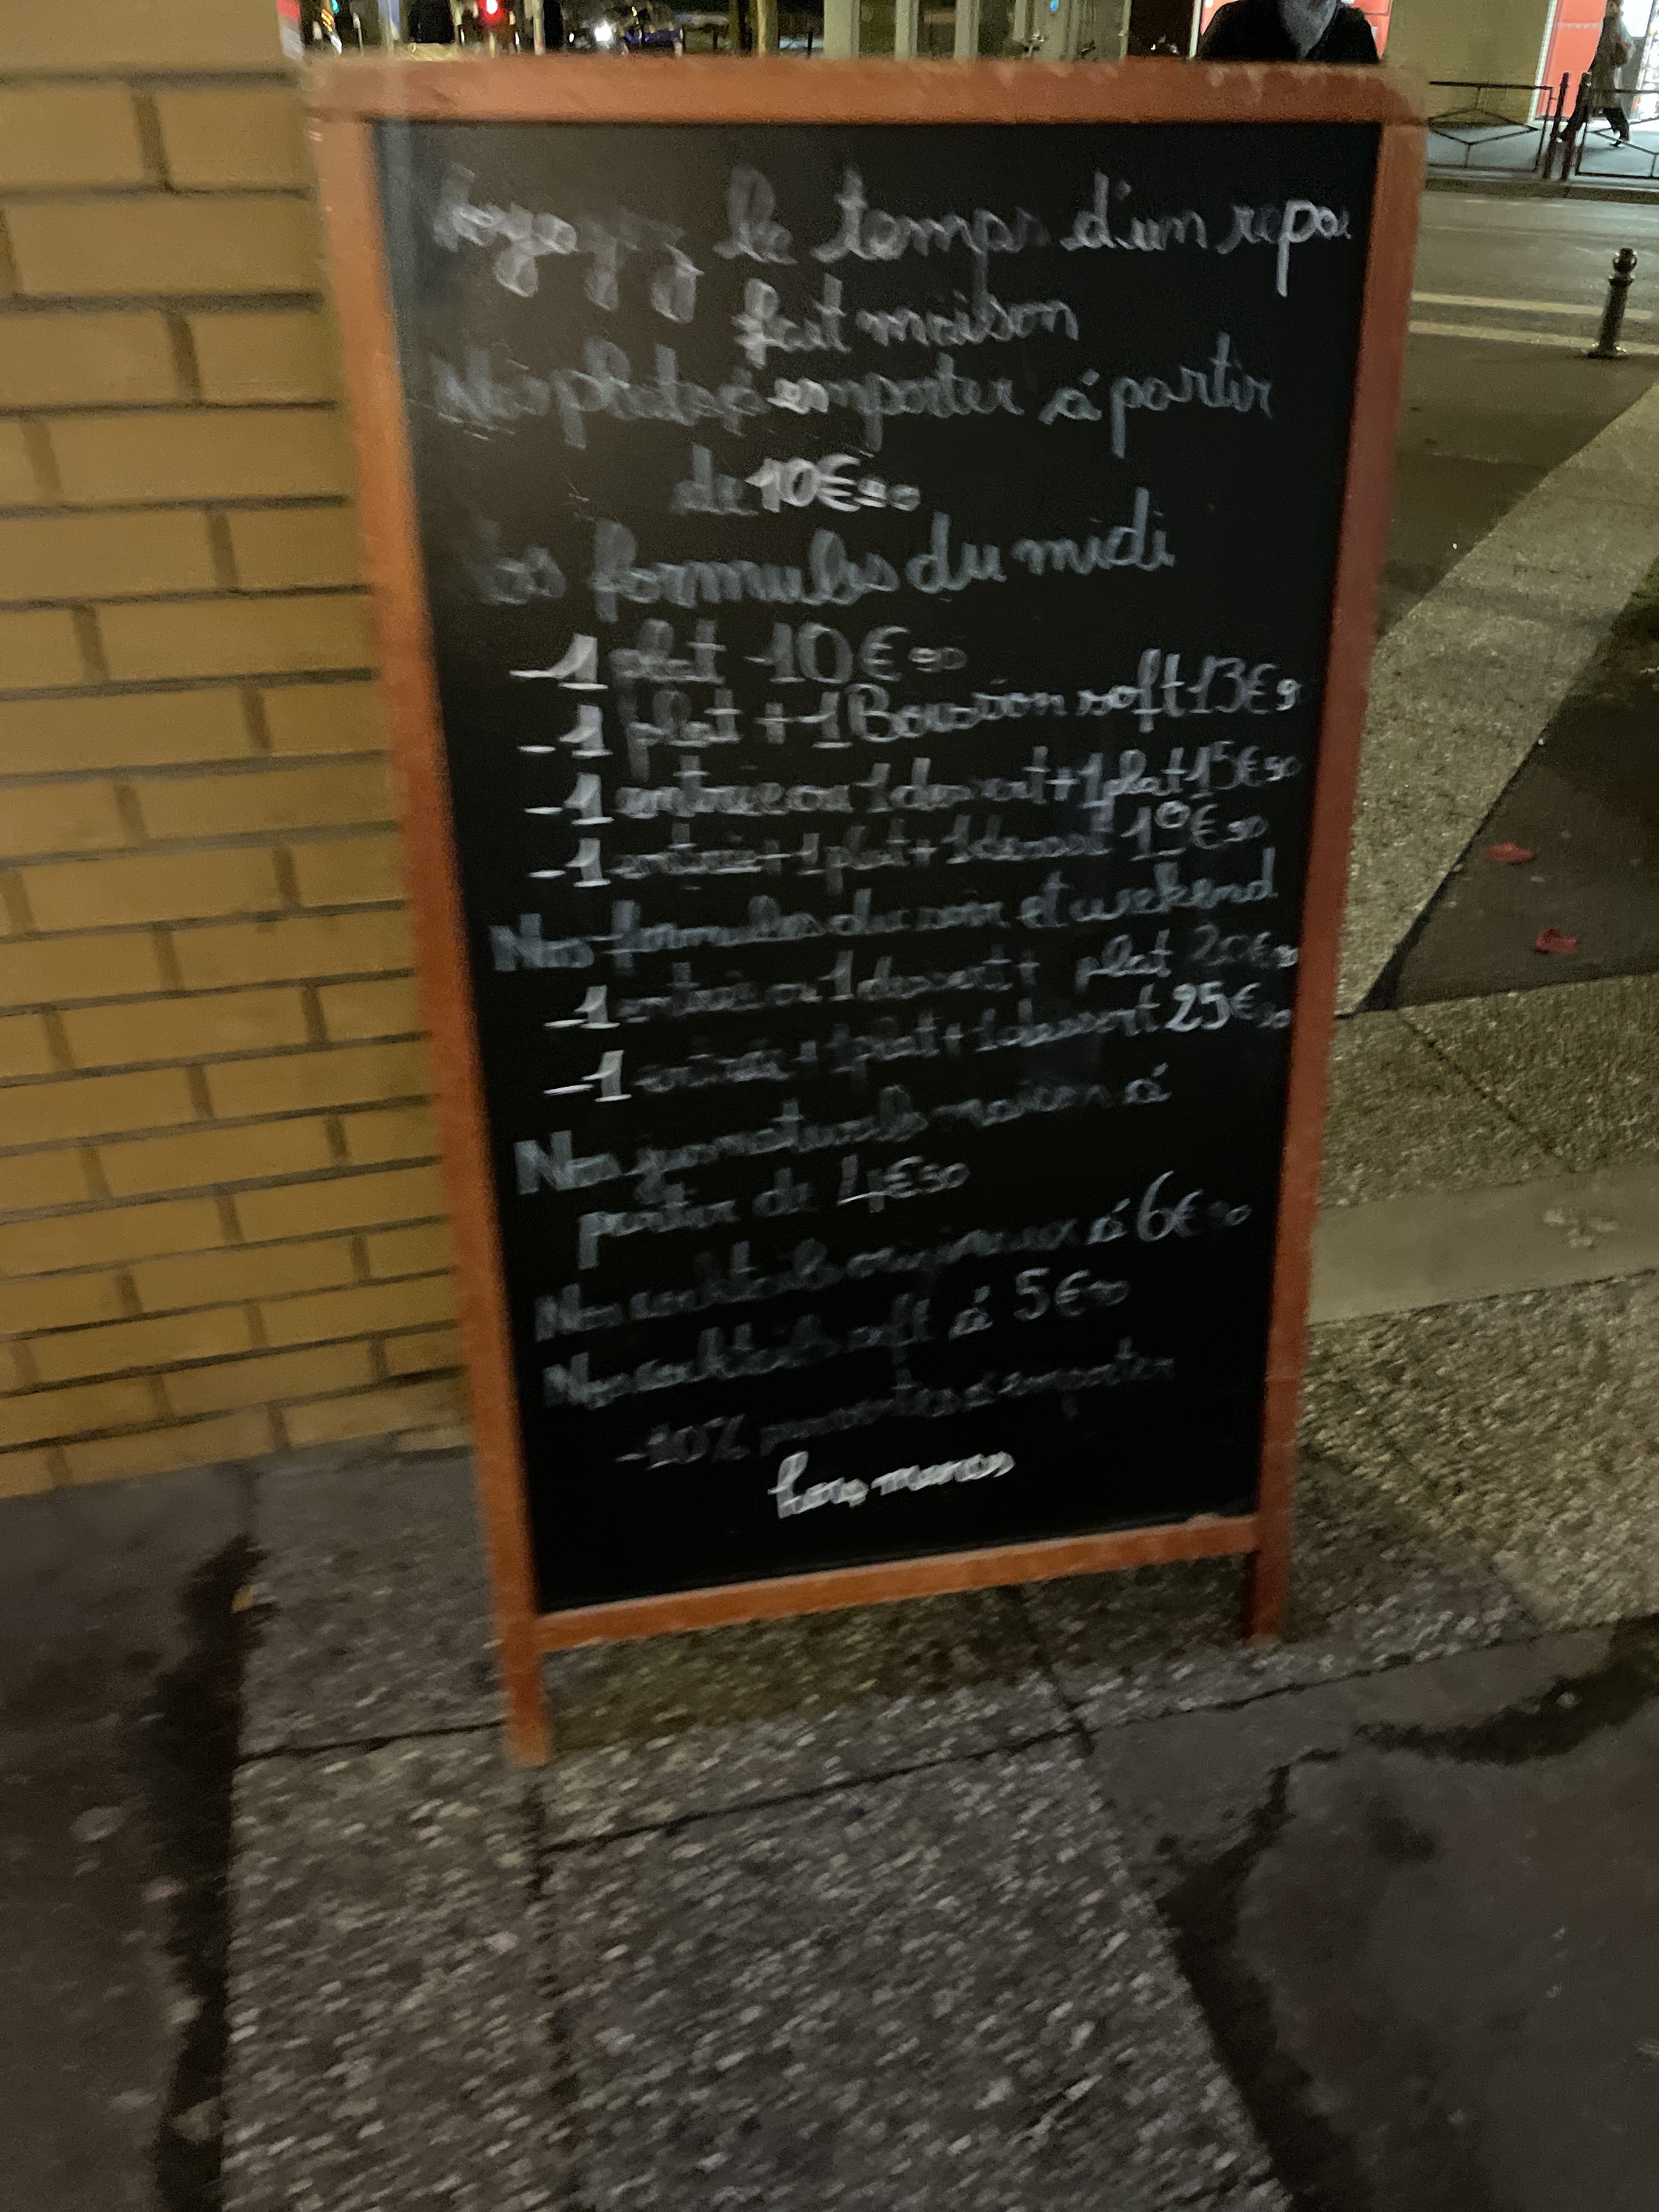 Voyagez le temps d'un repas
fait maison
Nos plats à emporter à partir
de 10€90
Nos formules du midi
-1 plat 10€90
-1 plat + 1 Boisson soft 13€9
-1 entrée ou 1 dessert + 1 plat 15€90
-1 entrée + 1 plat + 1 dessert €90
Nos formules du soir et weekend
-1 entrée ou 1 dessert + plat 20€90
-1 entrée + 1 plat + 1 dessert 25€90
Nos jus naturels maison à
partir de 4€50
Nos cocktails originaux à 6€
Nos cocktails soft à 5€
-10% à emporter
hors menus